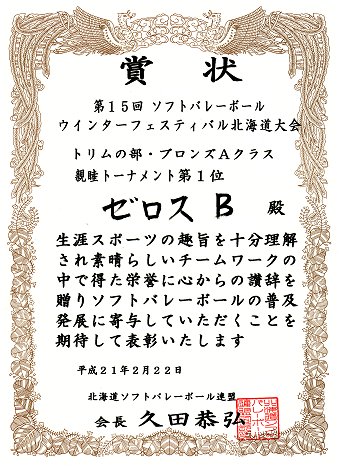 賞状
第15回 ソフトバレーボール
ウインターフェスティバル北海道大会
トリムの部・ブロンズAクラス
親睦トーナメント第1位
ゼロスB 殿
生涯スポーツの趣旨を十分理解
され素晴らしいチームワークの
中で得た栄誉に心からの讃辞を
贈りソフトバレーボールの普及
発展に寄与していただくことを
期待して表彰いたします
平成21年2月22日
北海道ソフトバレーボール連盟
会長 久田恭弘